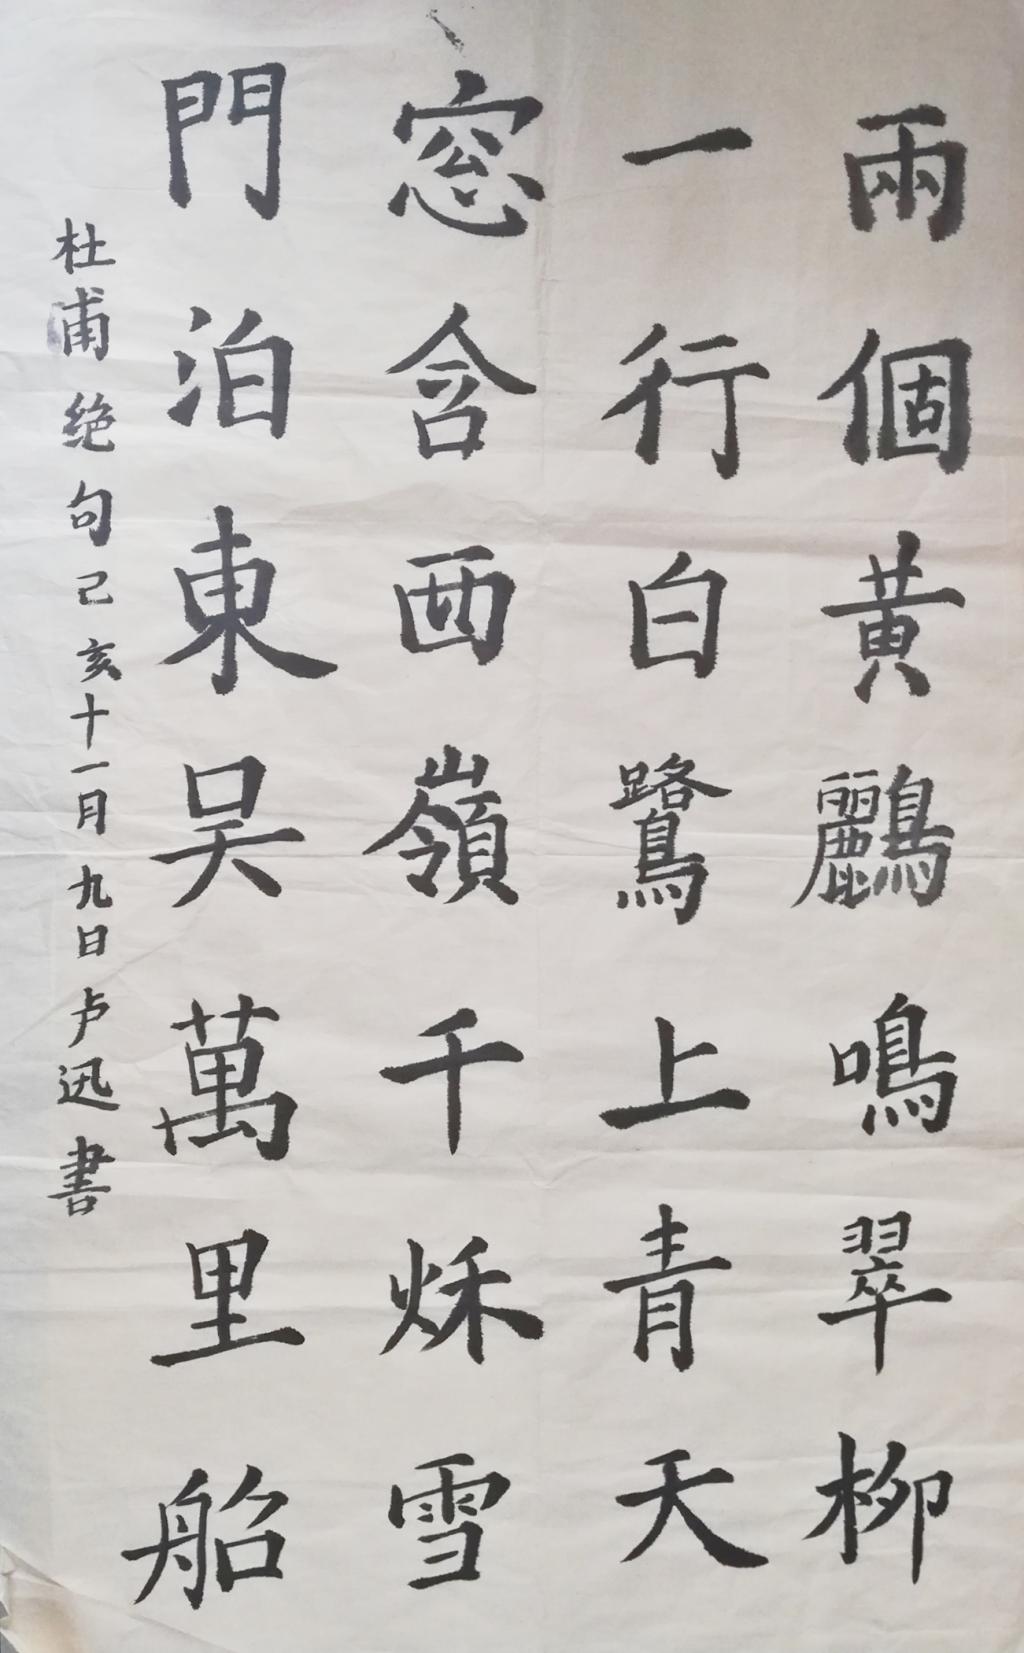 兩個黃鸝鳴翠柳
一行白鷺上青天
窓含西嶺千秌雪
門泊東吴萬里船
杜甫绝句己亥十一月九日卢迅書